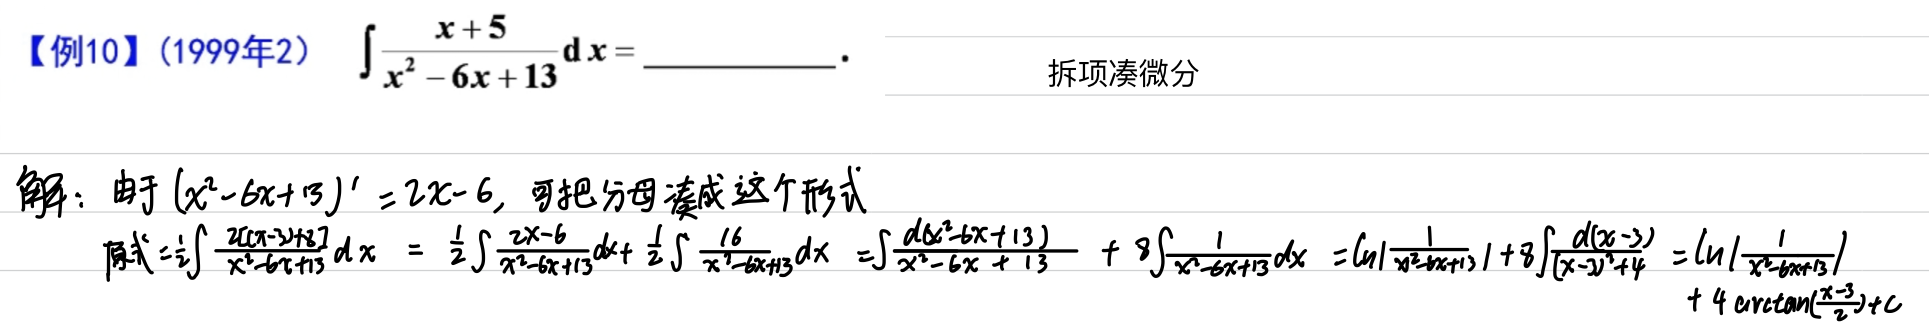 【例10】(1999年2) ∫ (x+5)/(x²-6x+13) dx = ________.
拆项凑微分
解：由于 (x²-6x+13)' = 2x-6, 可把分母凑成这个形式
原式 = 1/2 ∫ 2[(x-3)+8]/(x²-6x+13) dx = 1/2 ∫ (2x-6)/(x²-6x+13) dx + 1/2 ∫ 16/(x²-6x+13) dx = ∫ d(x²-6x+13)/(x²-6x+13) + 8∫ 1/(x²-6x+13) dx = ln|1/(x²-6x+13)| + 8∫ d(x-3)/((x-3)²+4) = ln|1/(x²-6x+13)|
+ 4 arctan((x-3)/2)+C